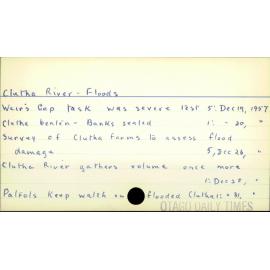 Clutha River - Floods
Weir's Gap task was severe test 5: Dec 19, 1957
Clutha benlön - Banks sealed 1: - 20, "
Survey of Clutha farms to assess flood
damage 5, Dec 26, "
Clutha River gathers volume once more
1: Dec 28, "
Patrols Keep watch on flooded Clutha 1: - 31, "
OTAGO DAILY TIMES